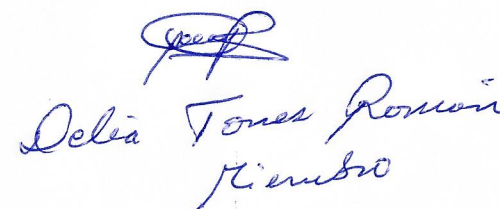 Delia Torres Román
Miembro